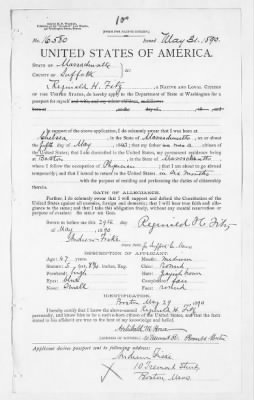 [FORM FOR NATIVE CITIZEN.]
No. 16550 Issued May 31, 1890.
UNITED STATES OF AMERICA.
STATE OF Massachusetts
COUNTY OF Suffolk
I, Reginald H. Fitz, A NATIVE AND LOYAL CITIZEN
OF THE UNITED STATES, do hereby apply to the Department of State at Washington for a
passport for myself
In support of the above application, I do solemnly swear that I was born at
Chelsea, in the State of Massachusetts, on or about
the fifth day of May, 1843; that
United States; that I am domiciled in the United States, my permanent residence being
at Boston, in the State of Massachusetts
where I follow the occupation of Physician; that I am about to go abroad
temporarily; and that I intend to return to the United States in six months
with the purpose of residing and performing the duties of citizenship
therein.
OATH OF ALLEGIANCE.
Further, I do solemnly swear that I will support and defend the Constitution of the
United States against all enemies, foreign and domestic; that I will bear true faith and allegiance
to the same; and that I take this obligation freely, without any mental reservation or
purpose of evasion: SO HELP ME GOD.
Sworn to before me this 29th day
of May, 1890 Reginald H. Fitz
Andrew Fiske
DESCRIPTION OF APPLICANT.
Age: 47 years. Mouth: medium
Stature: Chin: round
Forehead: high Hair:
Eyes: blue Complexion: fair
Nose: small Face: round
IDENTIFICATION.
Boston May 29, 1890
I hereby certify that I know the above-named Reginald H. Fitz
personally, and know him to be a native-born citizen of the United States, and that the facts
stated in his affidavit are true to the best of my knowledge and belief.
Applicant desires passport sent to following address:
Andrew Fiske
10 Tremont Street
Boston Mass.